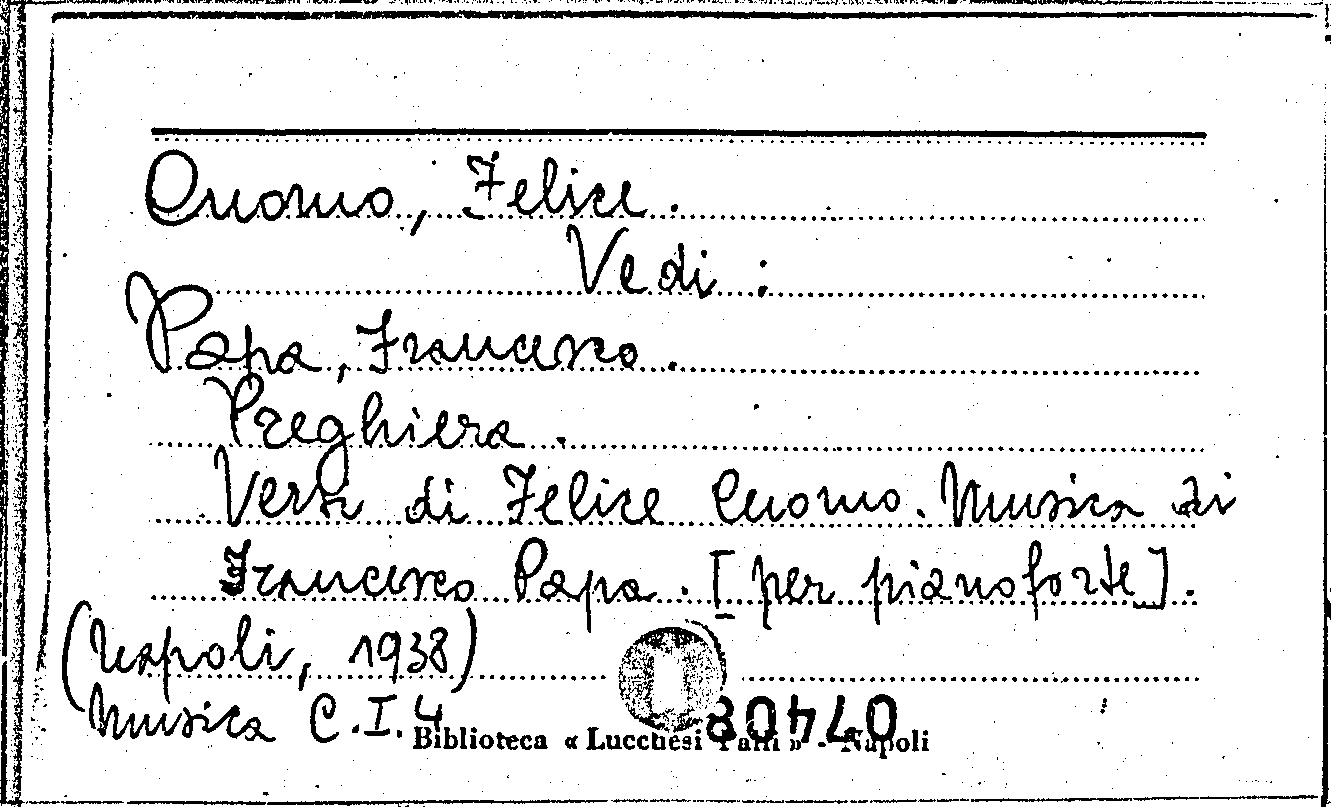 Cuomo, Felice.
Vedi :
Papa, Francesco.
Preghiera.
Versi di Felice Cuomo. Musica di
Francesco Papa. [per pianoforte].
(Napoli, 1938)
Musica C.I.4
Biblioteca « Lucchesi Palli » - Napoli
07408